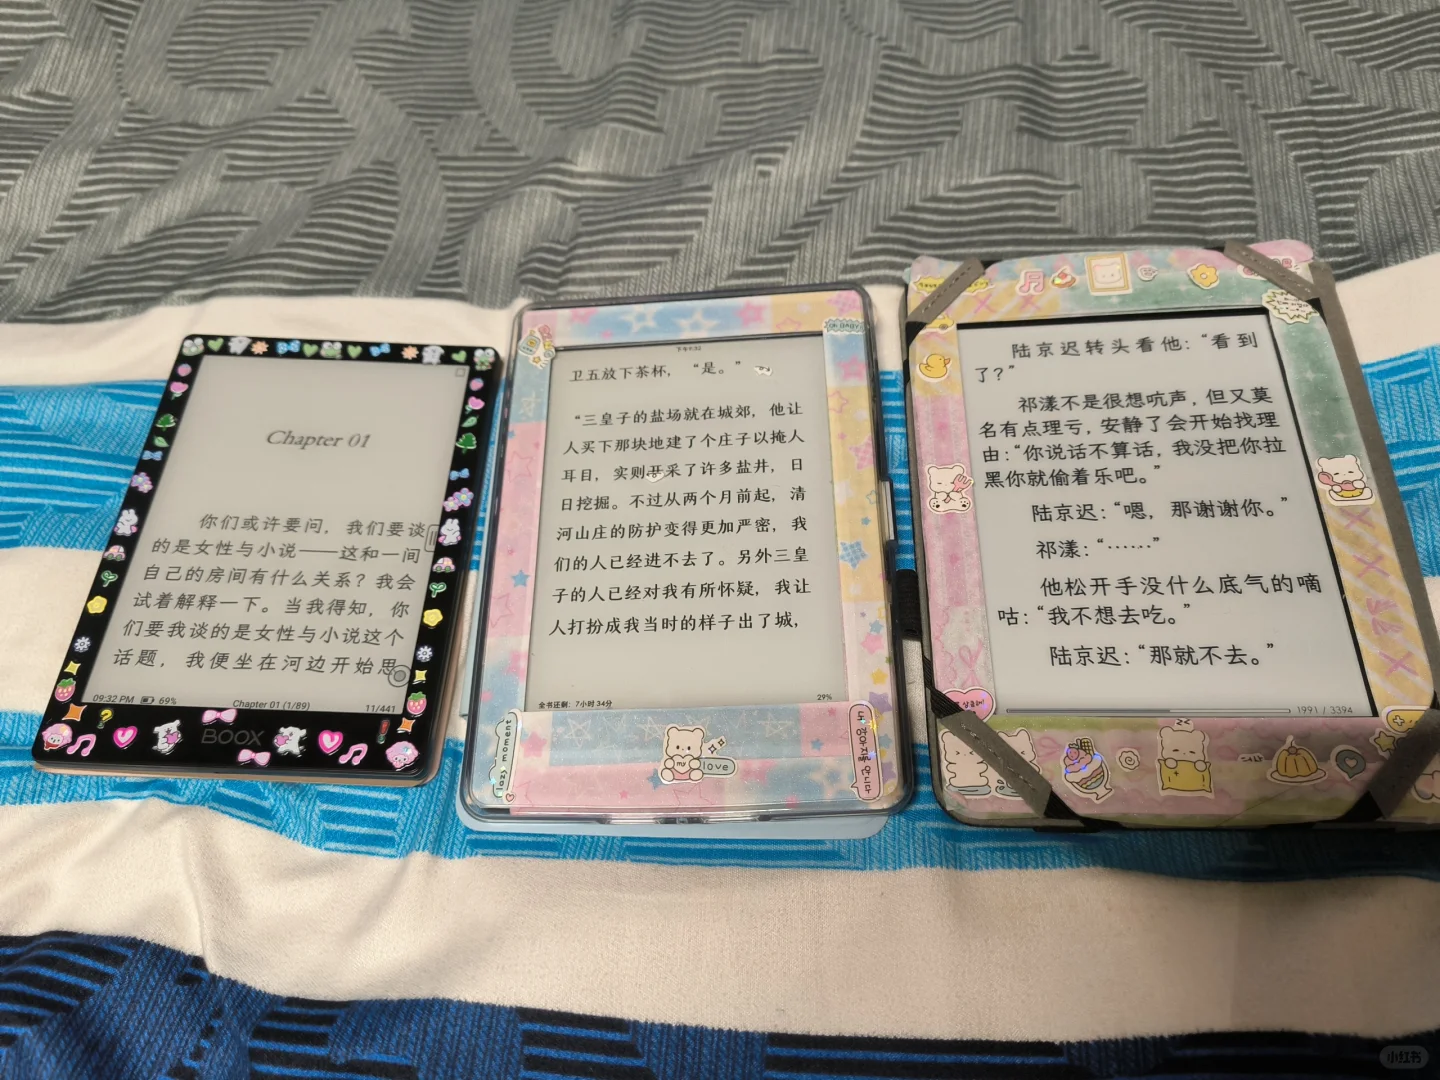 Chapter 01
你们或许要问，我们要谈
的是女性与小说——这和一间
自己的房间有什么关系？我会
试着解释一下。当我得知，你
们要我谈的是女性与小说这个
话题，我便坐在河边开始思
09:32 PM 69% Chapter 01 (1/89) 11/441
BOOX
OH BABY
卫五放下茶杯，“是。”
“三皇子的盐场就在城郊，他让
人买下那块地建了个庄子以掩人
耳目，实则开采了许多盐井，日
日挖掘。不过从两个月前起，清
河山庄的防护变得更加严密，我
们的人已经进不去了。另外三皇
子的人已经对我有所怀疑，我让
人打扮成我当时的样子出了城，
全书还剩：7小时34分 29%
lazy moment
love
陆京迟转头看他：“看到
了？”
祁漾不是很想吭声，但又莫
名有点理亏，安静了会开始找理
由：“你说话不算话，我没把你拉
黑你就偷着乐吧。”
陆京迟：“嗯，那谢谢你。”
祁漾：“……”
他松开手没什么底气的嘀
咕：“我不想去吃。”
陆京迟：“那就不去。”
1991 / 3394
小红书